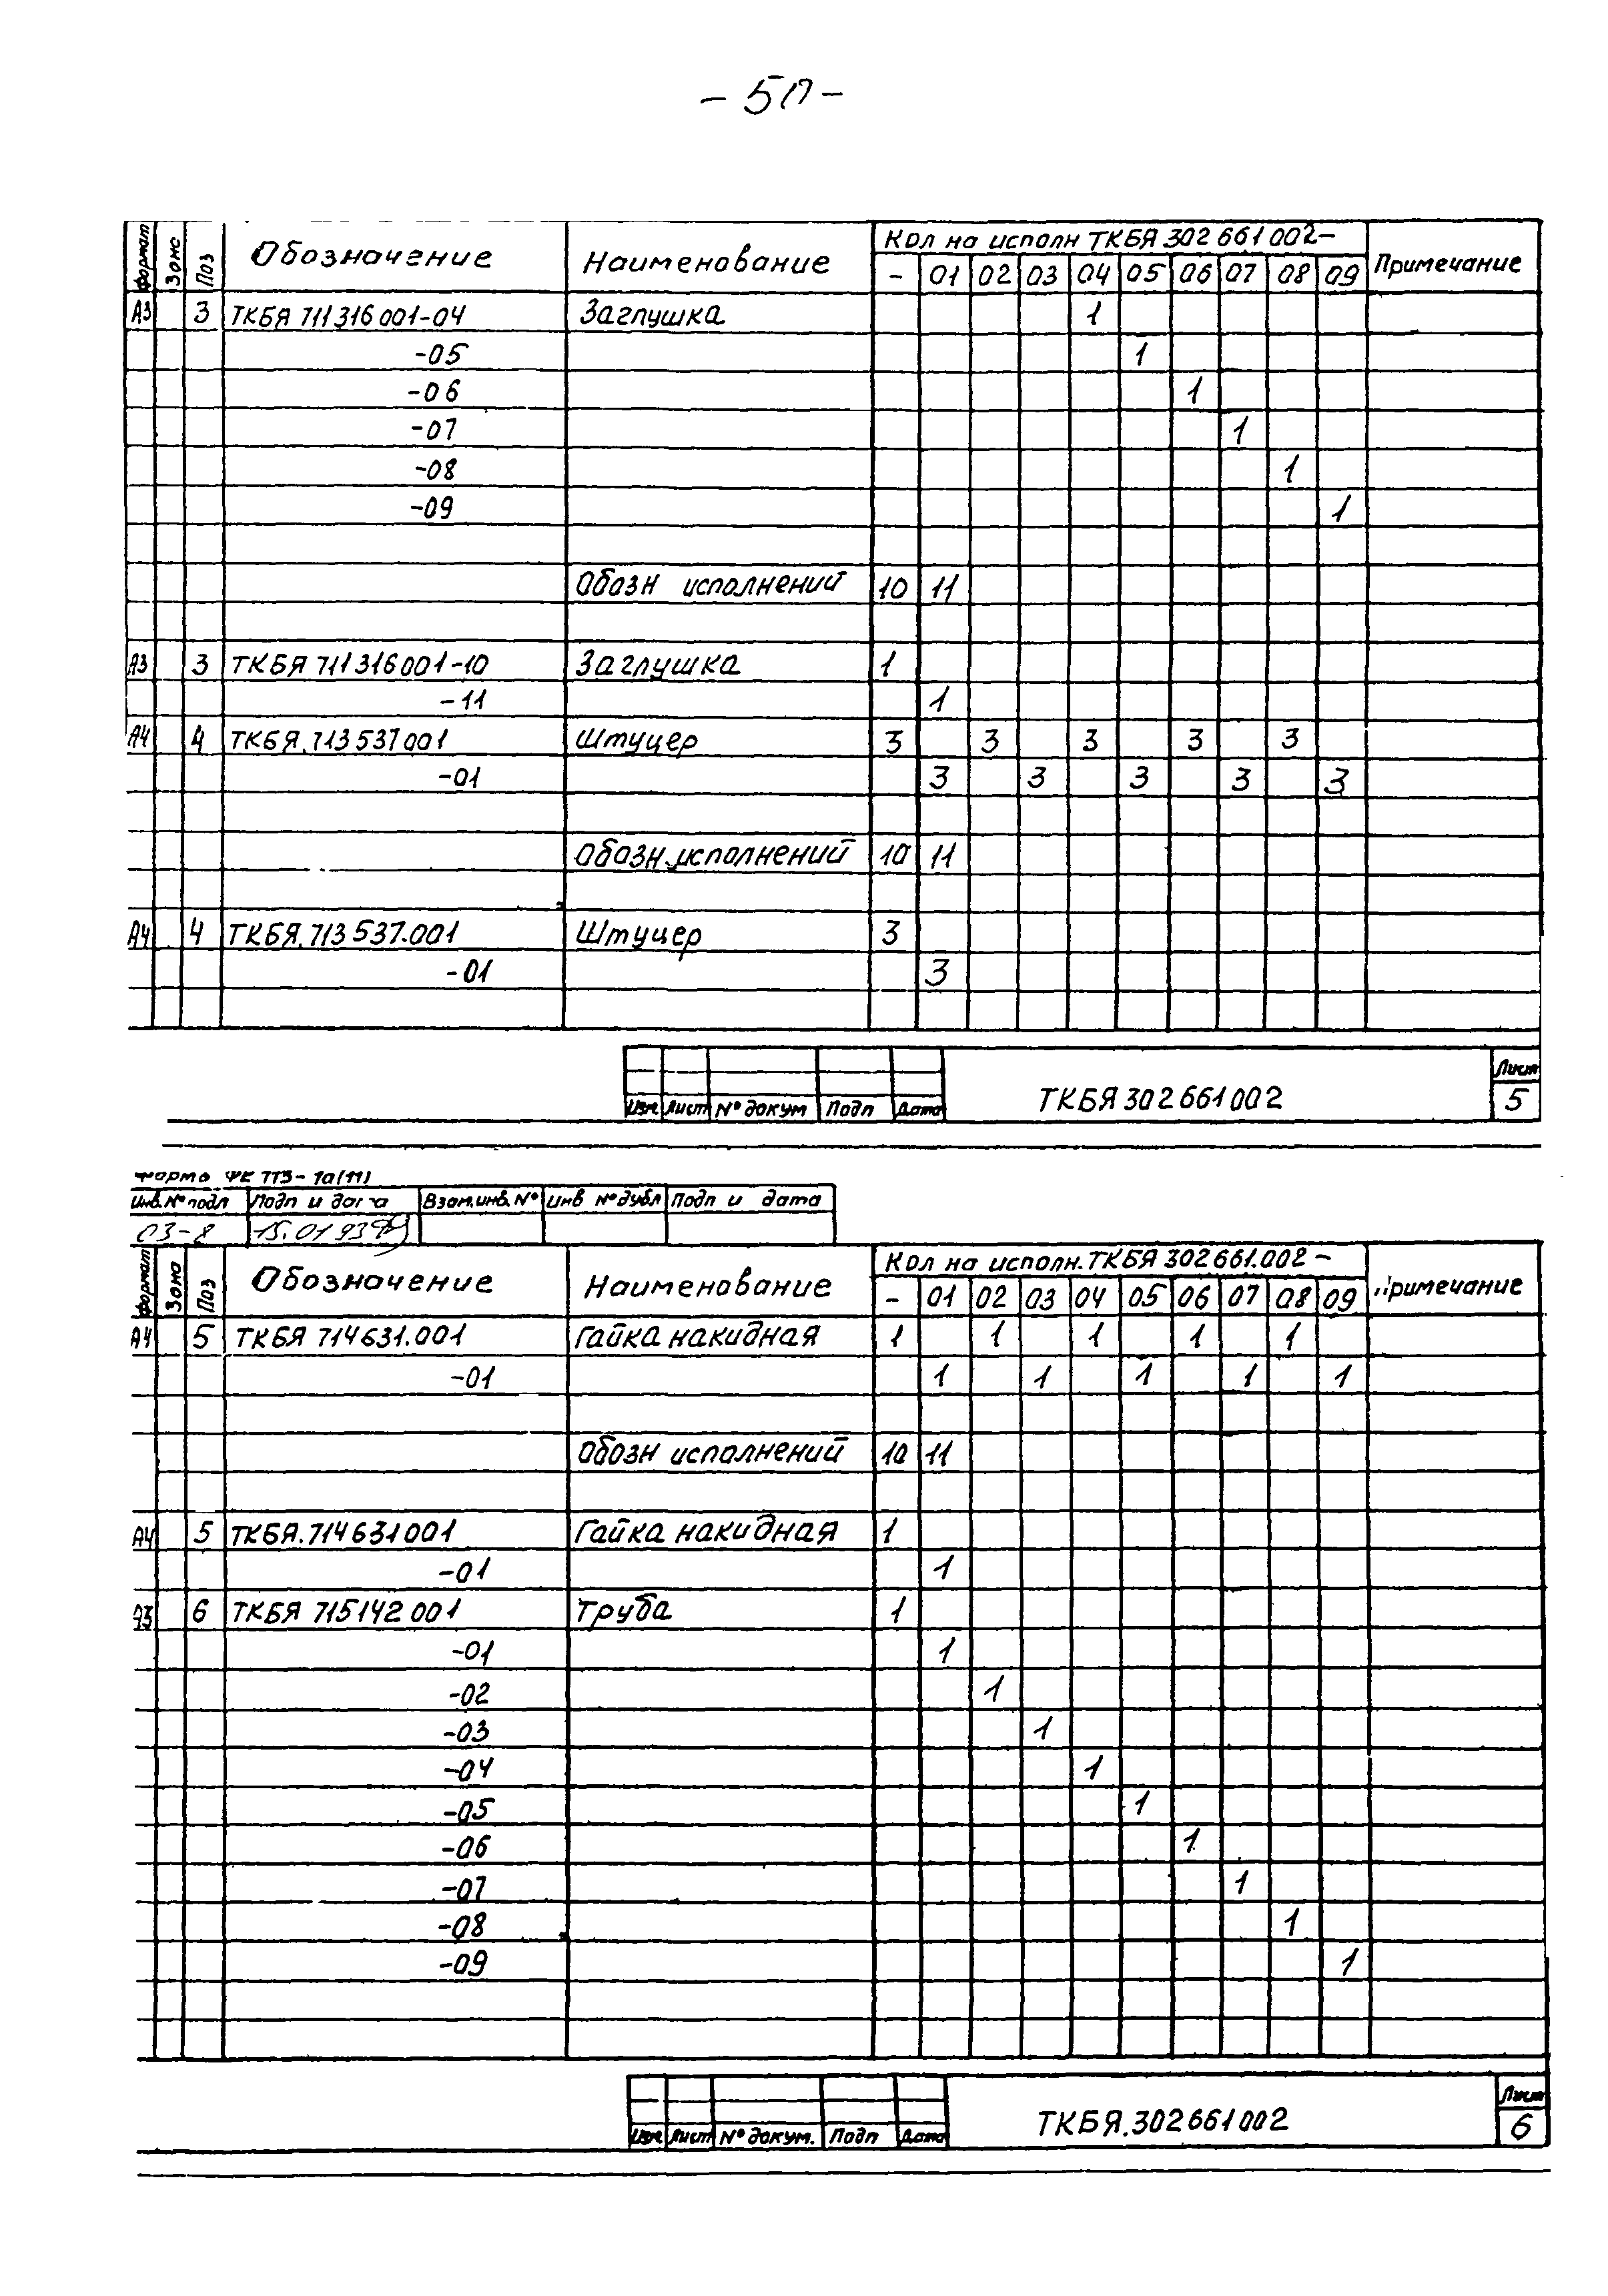 - 50 -
Формат Зона Поз Обозначение Наименование Кол на исполн ТКБЯ 302 661 002- Примечание
- 01 02 03 04 05 06 07 08 09
А3 3 ТКБЯ 711316 001-04 Заглушка 1
-05 1
-06 1
-07 1
-08 1
-09 1
Обозн исполнений 10 11
А3 3 ТКБЯ 711316001-10 Заглушка 1
-11 1
А4 4 ТКБЯ.713537001 Штуцер 3 3 3 3 3
-01 3 3 3 3 3
Обозн.исполнений 10 11
А4 4 ТКБЯ.713537.001 Штуцер 3
-01 3
Изм Лист № докум Подп Дата ТКБЯ 302 661 002 Лист 5
Инв.№ подл Подп и дата Взам.инв.№ Инв № дубл Подп и дата
03-8 15.01 93
Формат Зона Поз Обозначение Наименование Кол на исполн.ТКБЯ 302661.002 - Примечание
- 01 02 03 04 05 06 07 08 09
А4 5 ТКБЯ 714631.001 Гайка накидная 1 1 1 1 1
-01 1 1 1 1 1
Обозн исполнений 10 11
А4 5 ТКБЯ.714631001 Гайка накидная 1
-01 1
А3 6 ТКБЯ 715142 001 Труба 1
-01 1
-02 1
-03 1
-04 1
-05 1
-06 1
-07 1
-08 1
-09 1
Изм Лист № докум. Подп Дата ТКБЯ.302661002 Лист 6